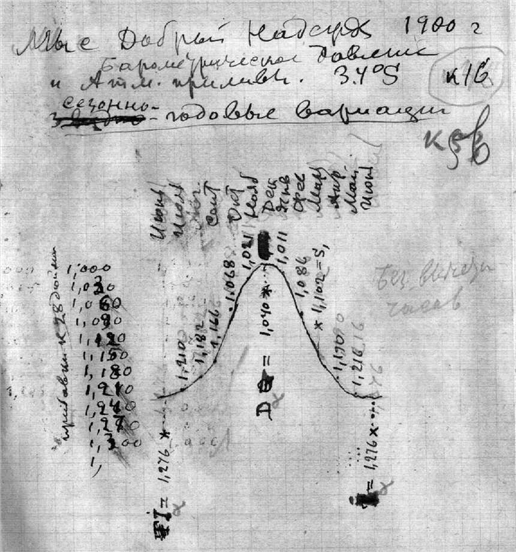 Мыс Доброй Надежд 1900 г
Барометрическое давление
и Атм. приливы. 34°S К16
сезонно-
годовые вариации
К5б
Июнь
Июл
Авг
Сент
Окт
Нояб
Дек
Янв
Фев
Март
Апр.
Май
Июнь
1,210
1,182
1,166
1,068
1,021
1,040 *
1,011
1,086
* 1,102 = S,
1,170
1,216
прибавки к 28 дюйм
1,000
1,030
1,060
1,090
1,120
1,150
1,180
1,210
1,240
1,270
1,300
1,
Без
часов
= 1,276 *
= 1,276 *